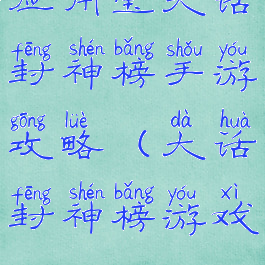 大话
fēng shén bǎng shǒu yóu
封神榜手游
gōng lüè dà huà
攻略（大话
fēng shén bǎng yóu xì
封神榜游戏